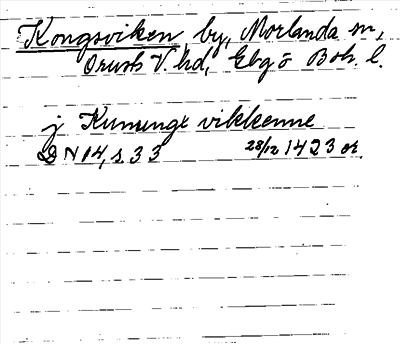 Kongsviken by, Morlanda sn,
Orusts V. hd, Gbg o Boh. l.
j Kununge vikkenne
DN 14, s 33 28/12 1423 or.